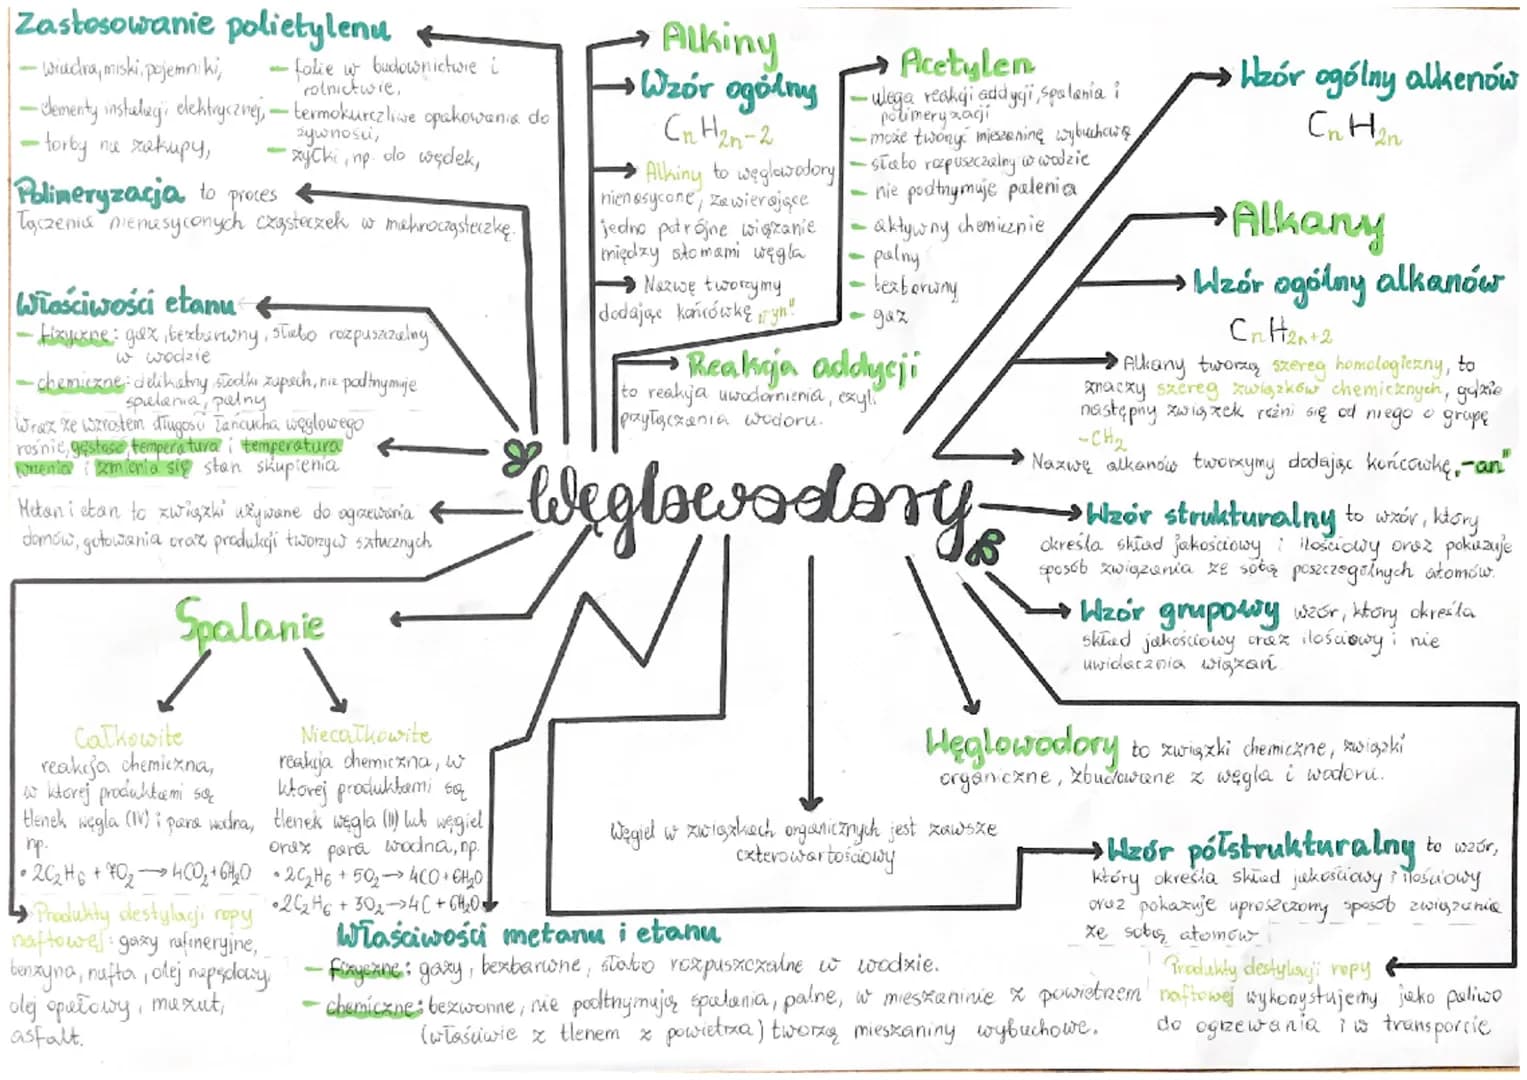 Zastosowanie polietylenu
– wiadra, miski, pojemniki,
– elementy instalacji elektrycznej,
– torby na zakupy,
– folie w budownictwie i
rolnictwie,
– termokurczliwe opakowania do
żywności,
– żyłki, np. do wędek,
Polimeryzacja to proces
łączenia nienasyconych cząsteczek w makrocząsteczkę.
Właściwości etanu
– fizyczne: gaz, bezbarwny, słabo rozpuszczalny
w wodzie
– chemiczne: delikatny słodki zapach, nie podtrzymuje
spalania, palny
Wraz ze wzrostem długości łańcucha węglowego
rośnie, gęstość, temperatura i temperatura
wrzenia i zmienia się stan skupienia
Metan i etan to związki używane do ogrzewania
domów, gotowania oraz produkcji tworzyw sztucznych
Alkiny
Wzór ogólny
CnH2n-2
Alkiny to węglowodory
nienasycone, zawierające
jedno potrójne wiązanie
między atomami węgla
Nazwę tworzymy
dodając końcówkę „yn"
Acetylen
– ulega reakcji addycji, spalania i
polimeryzacji
– może tworzyć mieszaninę wybuchową
– słabo rozpuszczalny w wodzie
– nie podtrzymuje palenia
– aktywny chemicznie
– palny
– bezbarwny
– gaz
Reakcja addycji
to reakcja uwodornienia, czyli
przyłączania wodoru.
Wzór ogólny alkenów
CnH2n
Alkany
Wzór ogólny alkanów
CnH2n+2
Alkany tworzą szereg homologiczny, to
znaczy szereg związków chemicznych, gdzie
następny związek różni się od niego o grupę
-CH2
Nazwę alkanów tworzymy dodając końcówkę „-an"
Węglowodory
Wzór strukturalny to wzór, który
określa skład jakościowy i ilościowy oraz pokazuje
sposób związania ze sobą poszczególnych atomów.
Wzór grupowy wzór, który określa
skład jakościowy oraz ilościowy i nie
uwidacznia wiązań
Spalanie
Całkowite
reakcja chemiczna,
w której produktami są
tlenek węgla (IV) i para wodna,
np.
• 2C2H6 + 7O2 → 4CO2 + 6H2O
Niecałkowite
reakcja chemiczna, w
której produktami są
tlenek węgla (II) lub węgiel
oraz para wodna, np.
• 2C2H6 + 5O2 → 4CO + 6H2O
• 2C2H6 + 3O2 → 4C + 6H2O
Węglowodory to związki chemiczne, związki
organiczne, zbudowane z węgla i wodoru.
Węgiel w związkach organicznych jest zawsze
czterowartościowy
Wzór półstrukturalny to wzór,
który określa skład jakościowy i ilościowy
oraz pokazuje uproszczony sposób związania
ze sobą atomów
Produkty destylacji ropy
naftowej: gazy rafineryjne,
benzyna, nafta, olej napędowy,
olej opałowy, mazut,
asfalt.
Właściwości metanu i etanu
– fizyczne: gazy, bezbarwne, słabo rozpuszczalne w wodzie.
– chemiczne: bezwonne, nie podtrzymują spalania, palne, w mieszaninie z powietrzem
(właściwie z tlenem z powietrza) tworzą mieszaniny wybuchowe.
Produkty destylacji ropy
naftowej wykorzystujemy jako paliwo
do ogrzewania i w transporcie